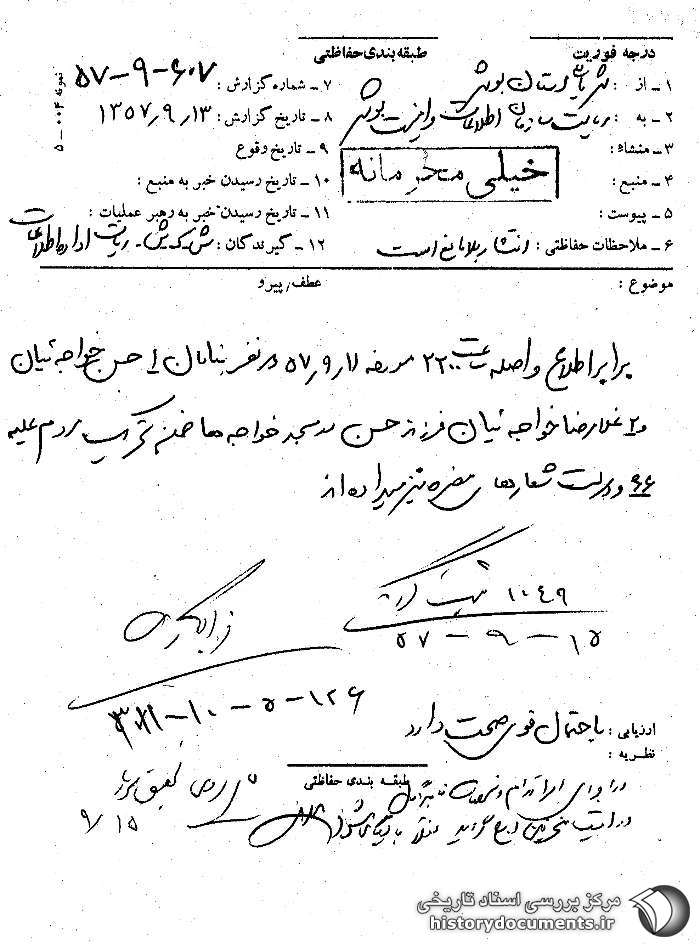 درجه فوریت
طبقه‌بندی حفاظتی
۱ــ از : شهربانی استان بوشهر
۷ــ شماره گزارش : ۶۰۷-۹-۵۷
۲ــ به : ریاست سازمان اطلاعات و امنیت بوشهر
۸ــ تاریخ گزارش : ۱۳۵۷٫۹٫۱۳
۳ــ منشاء :
۹ــ تاریخ وقوع
۴ــ منبع :
خیلی محرمانه
۱۰ــ تاریخ رسیدن خبر به منبع :
۵ــ پیوست :
۱۱ــ تاریخ رسیدن خبر به رهبر عملیات :
۶ــ ملاحظات حفاظتی : انتشار بلامانع است
۱۲ــ گیرندگان : ریاست اداره اطلاعات
موضوع :
عطف/پیرو
برابر اطلاع واصله ساعت ۲۲۰۰ مورخه ۵۷٫۹٫۱۱ دو نفر بنامان ۱ حسن خواجه ئیان
و ۲ غلامرضا خواجه ئیان فرزند حسن در مسجد خواجه ها ضمن تحریک مردم علیه
۶۶ و دولت شعارهای مضره نیز میداده اند
۱۰۴۹
۵۷-۹-۱۵
۱۲۶-۵-۱۰-
ارزیابی : باحتمال قوی صحت دارد
نظریه :
طبقه بندی حفاظتی
۹/۱۵
مرکز بررسی اسناد تاریخی
historydocuments.ir